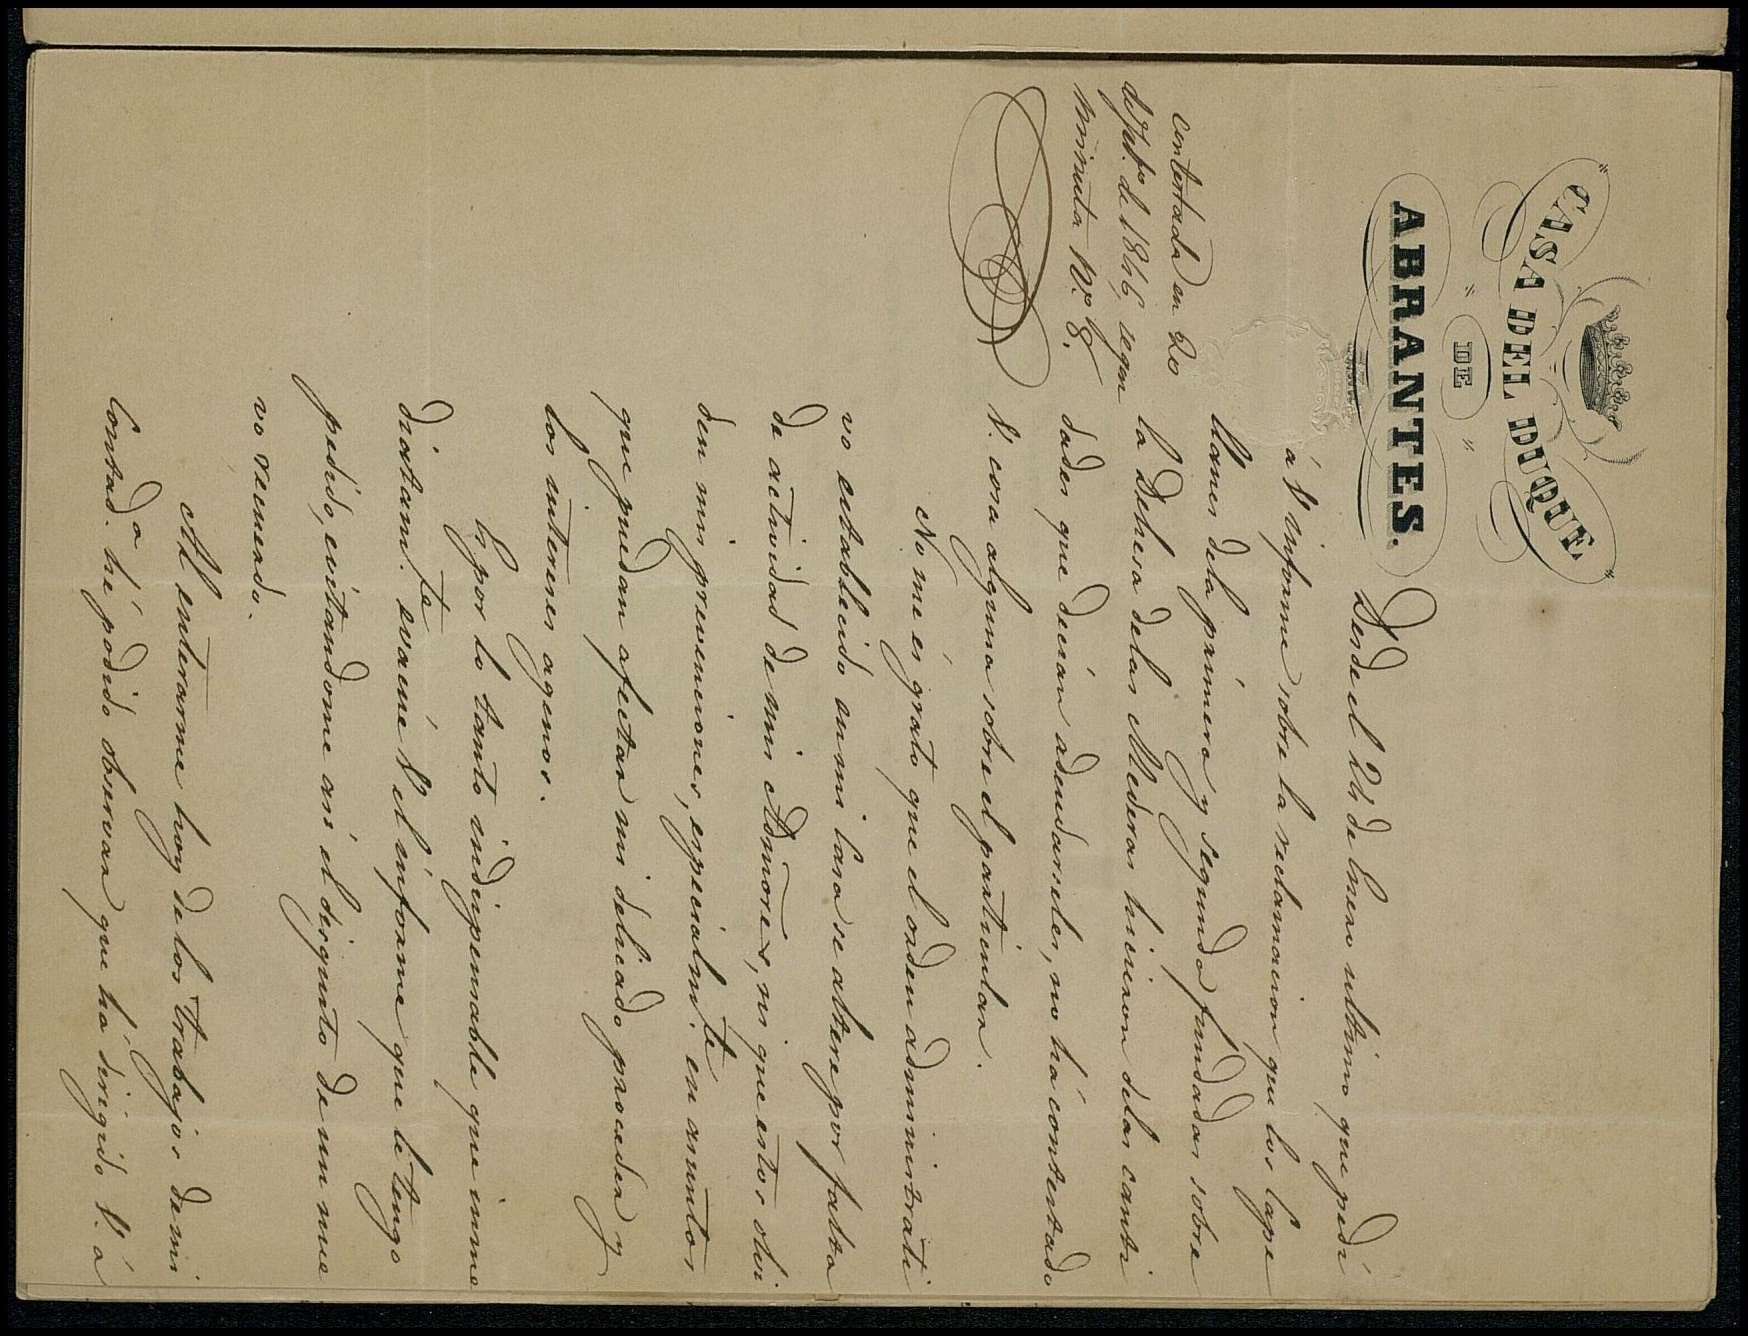 CASA DEL DUQUE
DE
ABRANTES.
contestada en 20
de Feb.º de 1846, segun
minuta N.º 8.
Desde el 24 de Enero ultimo que pedí
á V. informe sobre la reclamacion que los Cape
llanes dela primera y segunda fundadas sobre
la Dehesa delas Mederas hicieron delas canti
dades que decian adeudarseles, no há contestado
V. cosa alguna sobre el particular.
No me és grato que el orden administrati
vo establecido en mi Casa se altere por falta
de actividad de mis Admõres, ni que estos olvi
den mis prevenciones, especialm.te en asuntos
que puedan afectar mi delicado proceder y
los intereses agenos.
Es por lo tanto indispensable que inme
diatam.te evacúe V. el informe que le tengo
pedido, evitandome asi el disgusto de un nue
vo recuerdo.
Al enterarme hoy de los trabajos de mi
Contad.a hé podido observar que há dirigido V. á